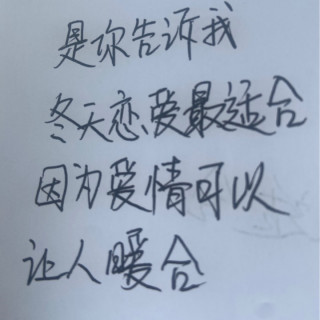 是你告诉我
冬天恋爱最适合
因为爱情可以
让人暖合